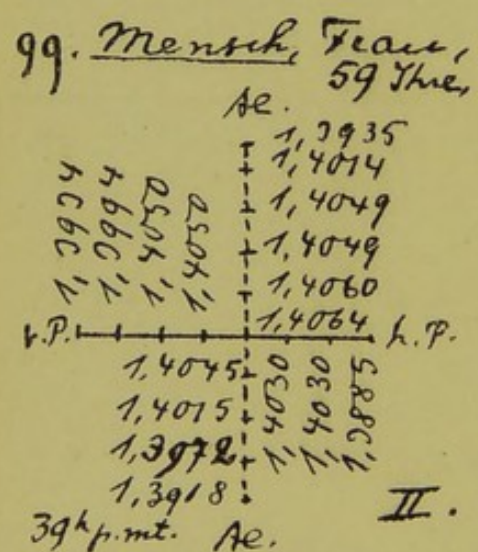 99. Mensch, Frau,
59 Jhre,
Ae.
1,3935
1,4014
1,4049
1,4049
1,4060
1,4064
1,4050
1,4050
v.P.
h.P.
1,4045
1,4015
1,3972
1,3918
1,4030
1,4030
1,3885
39h p.mt.
Ae.
II.